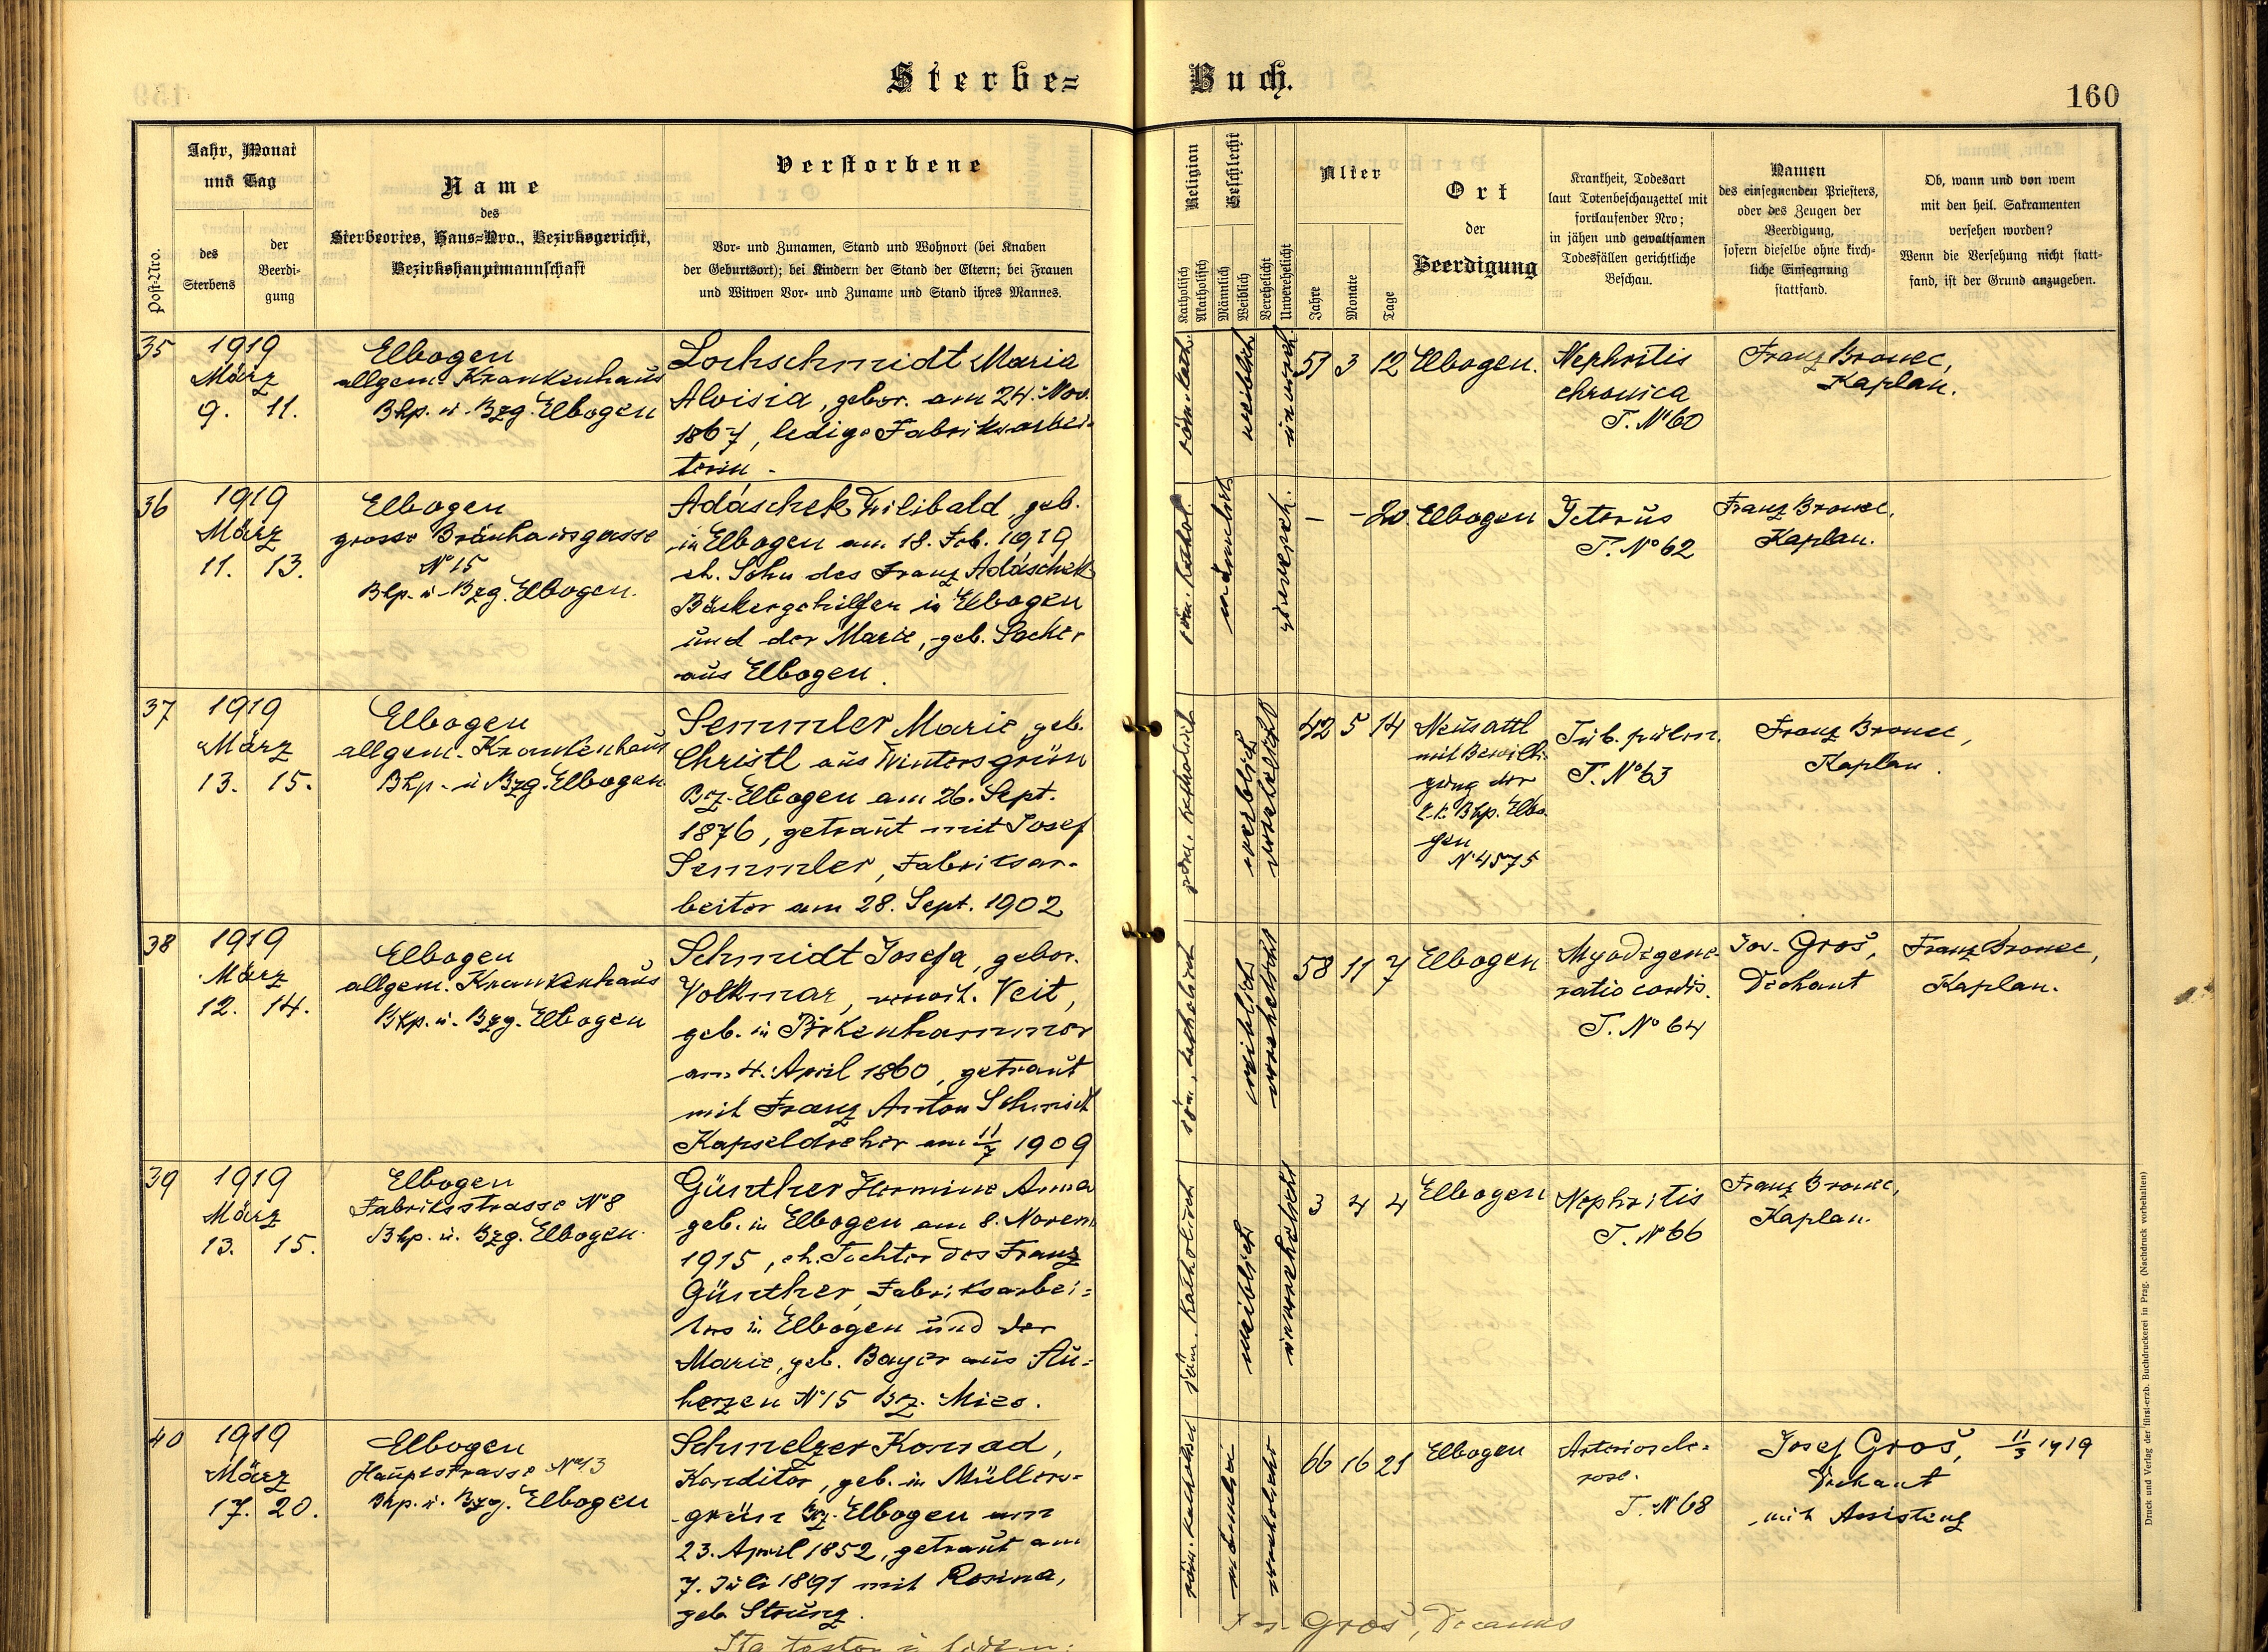 Sterbe=
Buch.
160
Post-Nro.
Jahr, Monat
und Tag
des
Sterbens
der
Beerdi-
gung
Name
des
Sterbeortes, Haus=Nro., Bezirksgericht,
Bezirkshauptmannschaft
Verstorbene
Vor- und Zunamen, Stand und Wohnort (bei Knaben
der Geburtsort); bei Kindern der Stand der Eltern; bei Frauen
und Witwen Vor- und Zuname und Stand ihres Mannes.
Religion
Katholisch
Akatholisch
Geschlecht
Männlich
Weiblich
Verehelicht
Unverehelicht
Alter
Jahre
Monate
Tage
Ort
der
Beerdigung
Krankheit, Todesart
laut Totenbeschauzettel mit
fortlaufender Nro;
in jähen und gewaltsamen
Todesfällen gerichtliche
Beschau.
Namen
des einsegnenden Priesters,
oder des Zeugen der
Beerdigung,
sofern dieselbe ohne kirch-
liche Einsegnung
stattfand.
Ob, wann und von wem
mit den heil. Sakramenten
versehen worden?
Wenn die Versehung nicht statt-
fand, ist der Grund anzugeben.
35
1919
März
9. 11.
Elbogen
allgem. Krankenhaus
Bhp. u. Bzg. Elbogen
Lochschmidt Maria
Aloisia, gebor. am 24. Nov.
1867, ledige Fabriksarbei-
terin.
röm. kath.
weiblich
unvereh.
51 3 12
Elbogen.
Nephritis
chronica
T. No 60
Franz Bronec,
Kaplan.
36
1919
März
11. 13.
Elbogen
grosse Bräuhausgasse
No 15
Bhp. u. Bzg. Elbogen.
Adáschek Wilibald, geb.
in Elbogen am 18. Feb. 1919
eh. Sohn des Franz Adáschek
Bäckergehilfen in Elbogen
und der Marie, geb. Sacker
aus Elbogen.
röm. kathol.
männlich
unvereh.
- - 20.
Elbogen
Icterus
T. No 62
Franz Bronec,
Kaplan.
37
1919
März
13. 15.
Elbogen
allgem. Krankenhaus
Bhp. u. Bzg. Elbogen
Semmler Marie geb.
Christl aus Wintersgrün
Bz. Elbogen am 26. Sept.
1876, getraut mit Josef
Semmler, Fabriksar-
beiter am 28. Sept. 1902
röm. katholisch
weiblich
verehelicht
42 5 14
Neusattl
mit Bewilli-
gung der
k. k. Bhp. Elbo-
gen
No 4575
Tub. pulm.
T. No 63
Franz Bronec,
Kaplan.
38
1919
März
12. 14.
Elbogen
allgem. Krankenhaus
Bhp. u. Bzg. Elbogen
Schmidt Josefa, gebor.
Volkmar, verwit. Veit,
geb. in Pirkenhammer
am 4. April 1860, getraut
mit Franz Anton Schmidt
Kapseldreher am 11/7 1909
röm. katholisch
weiblich
verehelicht
58 11 7
Elbogen
Myodegene-
ratio cordis.
T. No 64
Jos. Groš,
Dechant
Franz Bronec,
Kaplan.
39
1919
März
13. 15.
Elbogen
Fabriksstrasse No 8
Bhp. u. Bzg. Elbogen.
Günther Hermine Anna
geb. in Elbogen am 8. Novem.
1915, eh. Tochter des Franz
Günther, Fabriksarbei=
ters in Elbogen und der
Marie, geb. Bayer aus Au=
herzen No 15 Bz. Mies.
röm. katholisch
weiblich
unverehelicht
3 4 4
Elbogen
Nephritis
T. No 66
Franz Bronec,
Kaplan.
40
1919
März
17. 20.
Elbogen
Hauptstrasse No 13
Bhp. u. Bzg. Elbogen
Schmelzer Konrad,
Konditor, geb. in Müllers-
grün Bz. Elbogen am
23. April 1852, getraut am
7. Juli 1891 mit Rosina,
geb. Strunz.
röm. katholisch
männlich
verehelicht
66 16 21
Elbogen
Arterioskle-
rose.
T. No 68
Josef Groš,
Dechant
mit Assistenz
11/3 1919
Jos. Groš, Decanus
Druck und Verlag der fürst-erzb. Buchdruckerei in Prag. (Nachdruck vorbehalten)